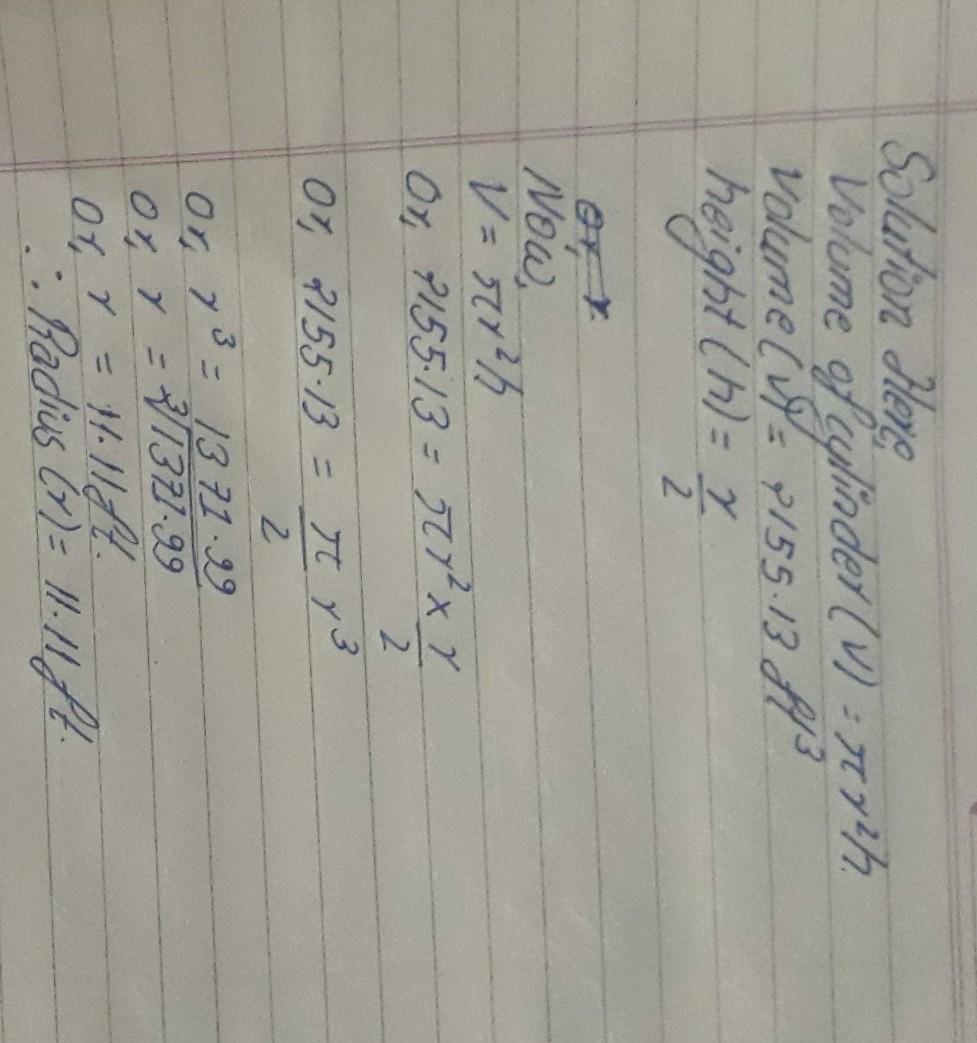 Solution Here,
Volume of cylinder (V) = πr²h.
Volume (V) = 2155.13 ft³
height (h) = r/2
Now,
V = πr²h
Or, 2155.13 = πr² × r/2
Or, 2155.13 = π/2 r³
Or, r³ = 1371.99
Or, r = ³√1371.99
Or, r = 11.11 ft.
∴ Radius (r) = 11.11 ft.